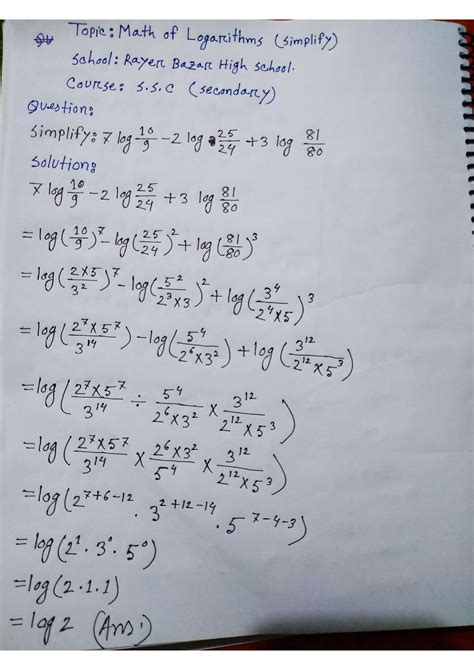 Topic: Math of Logarithms (simplify)
School: Rayer Bazar High school.
Course: S.S.C (secondary)
Question:
Simplify: 7 log 10/9 - 2 log 25/24 + 3 log 81/80
Solution:
7 log 10/9 - 2 log 25/24 + 3 log 81/80
= log(10/9)^7 - log(25/24)^2 + log(81/80)^3
= log(2×5/3^2)^7 - log(5^2/2^3×3)^2 + log(3^4/2^4×5)^3
= log(2^7×5^7/3^14) - log(5^4/2^6×3^2) + log(3^12/2^12×5^3)
= log(2^7×5^7/3^14 ÷ 5^4/2^6×3^2 × 3^12/2^12×5^3)
= log(2^7×5^7/3^14 × 2^6×3^2/5^4 × 3^12/2^12×5^3)
= log(2^7+6-12 · 3^2+12-14 · 5^7-4-3)
= log(2^1 · 3^0 · 5^0)
= log(2·1·1)
= log 2 (Ans:)